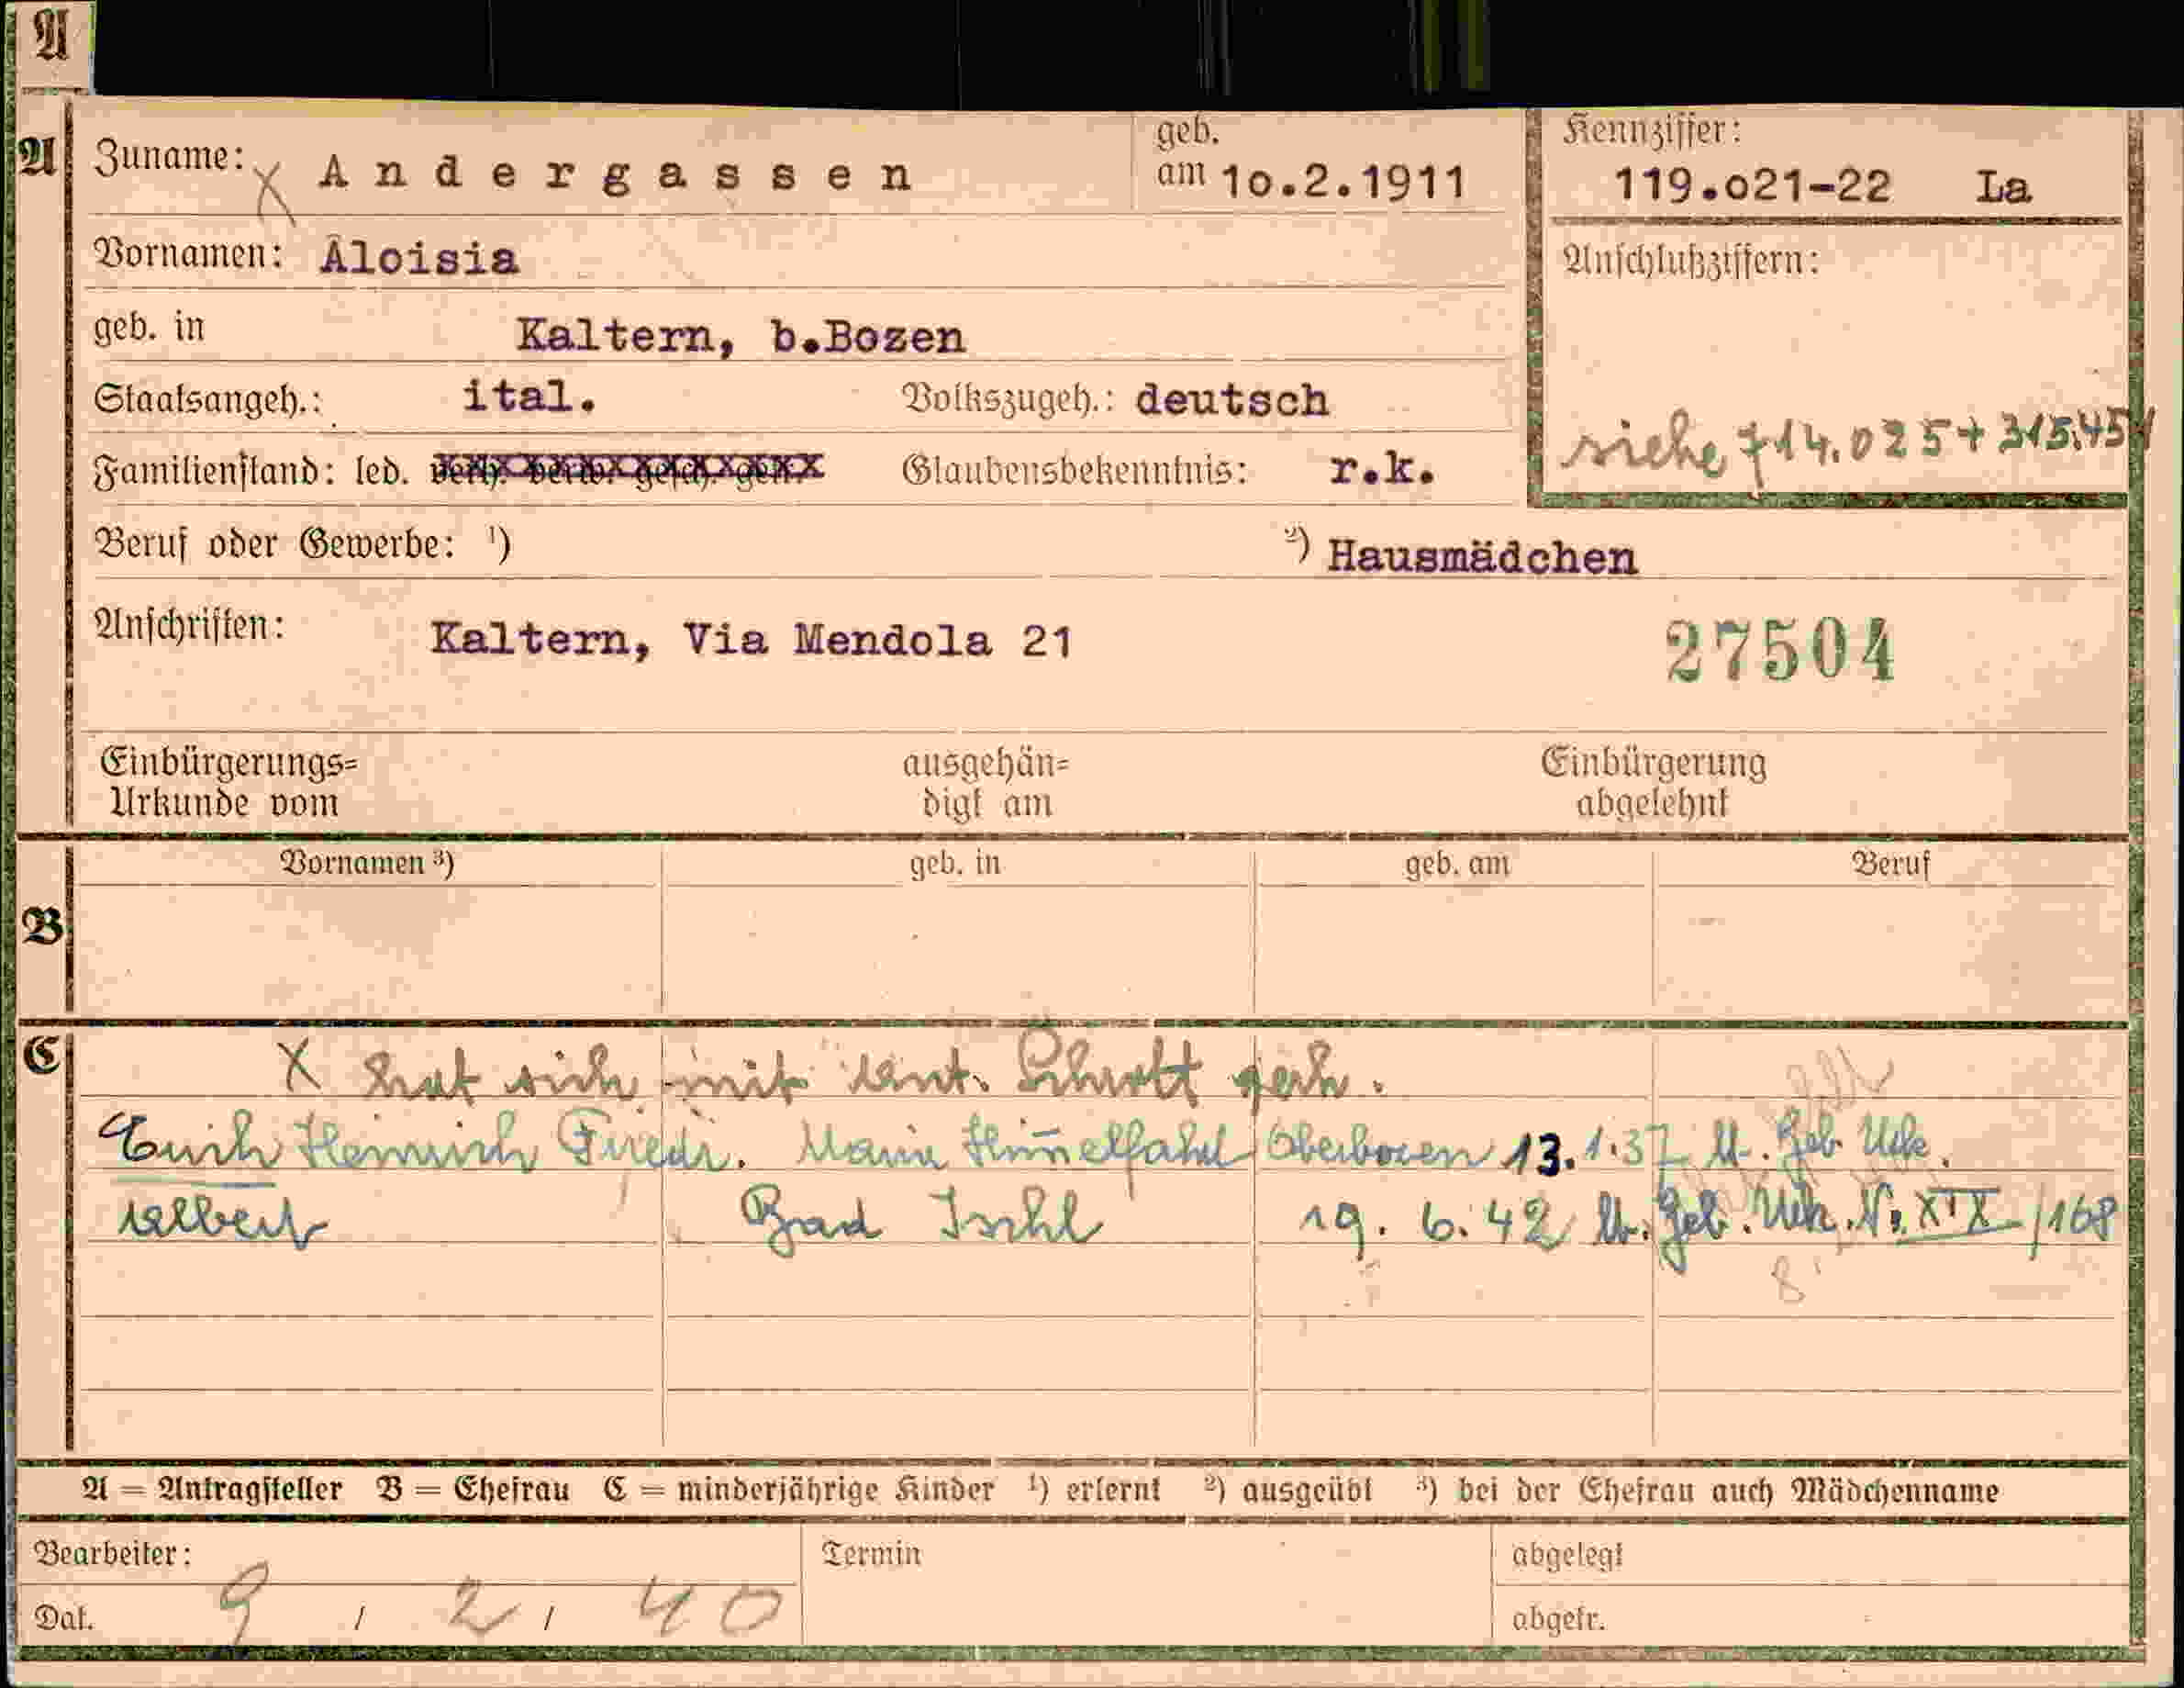 A
A
Zuname: X Andergassen geb. am 1o.2.1911
Kennziffer: 119.o21-22 La
Vornamen: Aloisia
Anschlußziffern:
geb. in Kaltern, b.Bozen
Staatsangeh.: ital. Volkszugeh.: deutsch
siehe 714.025 + 315.451
Familienstand: led. verh. verw. gesch. getr. Glaubensbekenntnis: r.k.
Beruf oder Gewerbe: ¹) ²) Hausmädchen
Anschriften: Kaltern, Via Mendola 21
27504
Einbürgerungs= Urkunde vom ausgehän= digt am Einbürgerung abgelehnt
B
Vornamen ³) geb. in geb. am Beruf
C
X hat sich mit Schrott
Erich Heinrich Friedr. Maria Himmelfahrt Oberbozen 13.1.37 lt. Geb. Urk.
Albert Bad Ischl 19. 6. 42 lt. Geb. Urk. N. XIX /168
8
A = Antragsteller B = Ehefrau C = minderjährige Kinder ¹) erlernt ²) ausgeübt ³) bei der Ehefrau auch Mädchenname
Bearbeiter: Termin abgelegt
Dat. 9 / 2 / 40 abgefr.